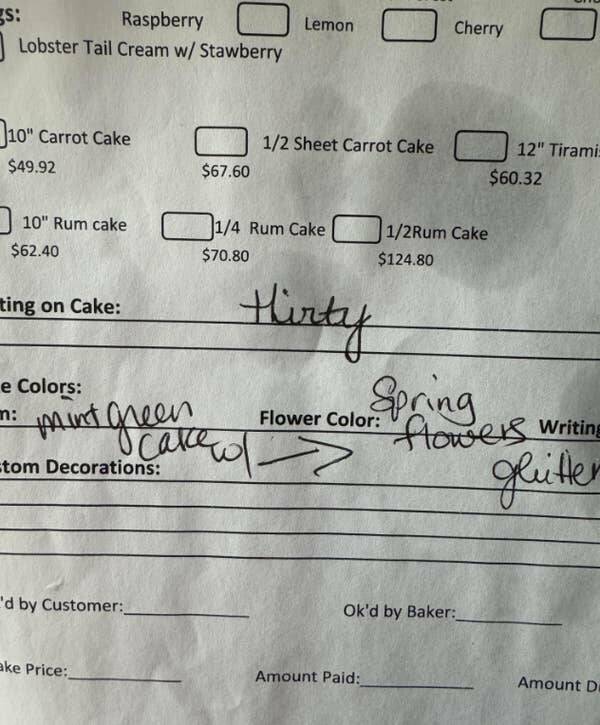 gs:
Raspberry Lemon Cherry
Lobster Tail Cream w/ Stawberry
10" Carrot Cake 1/2 Sheet Carrot Cake 12" Tirami
$49.92 $67.60 $60.32
10" Rum cake 1/4 Rum Cake 1/2Rum Cake
$62.40 $70.80 $124.80
ting on Cake: thirty
e Colors:
m: mint green Flower Color: Spring flowers Writing
cake w/
glitter
stom Decorations:
'd by Customer: Ok'd by Baker:
ake Price: Amount Paid: Amount D